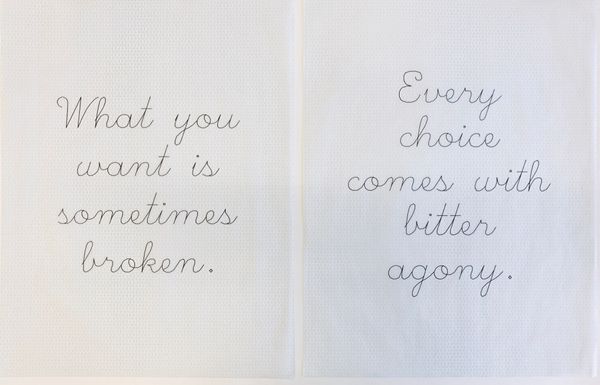 What you
want is
sometimes
broken.
Every
choice
comes with
bitter
agony.